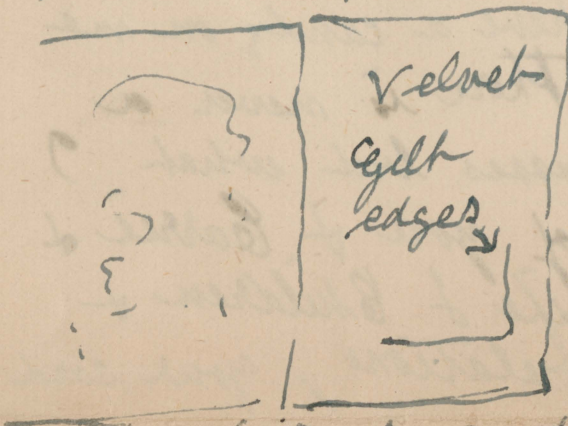 Velvet
Gilt
edges